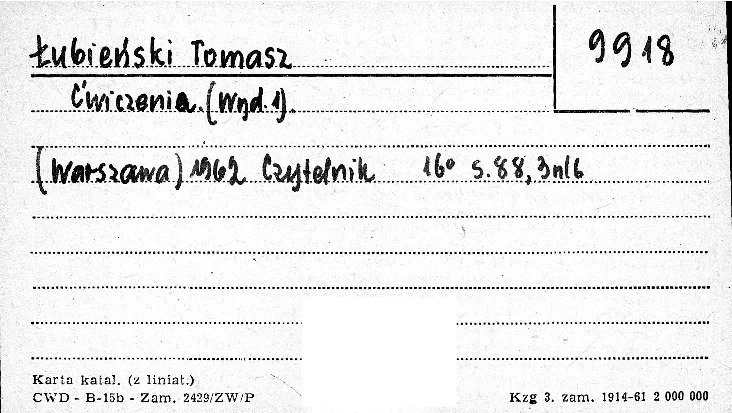 Łubieński Tomasz
9918
Ćwiczenia. (Wyd. 1).
(Warszawa) 1962 Czytelnik 16° s. 88, 3 nlb
Karta katal. (z liniat.)
CWD - B-15b - Zam. 2429/ZW/P
Kzg 3. zam. 1914-61 2 000 000